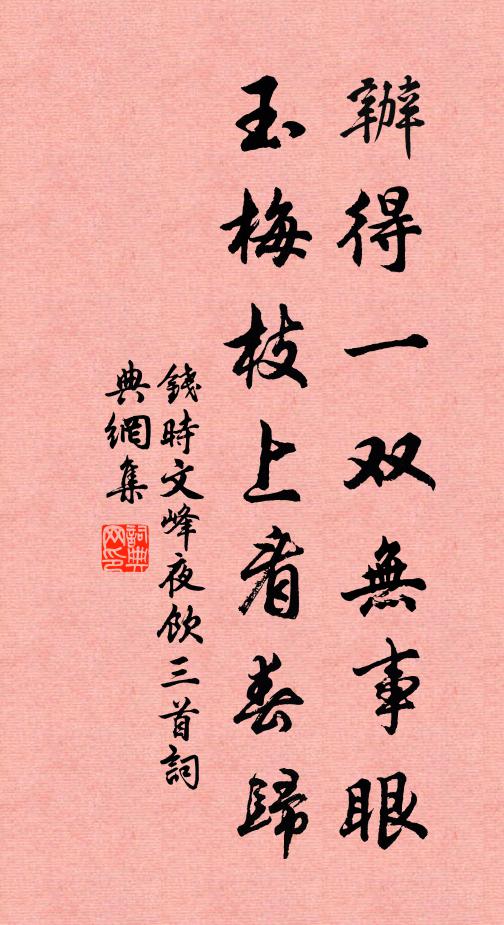 辦得一双無事眼
玉梅枝上看春歸
錢時文峰夜飲三首詞
典網集
詞典網印